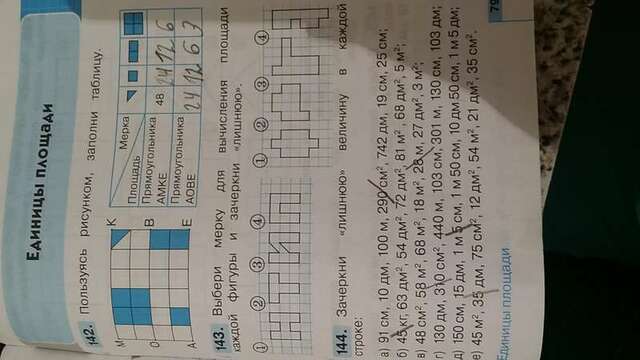 Единицы площади
142. Пользуясь рисунком, заполни таблицу.
М К
О В
А Е
Мерка
Площадь
Прямоугольника АМКЕ 48 24 12 6
Прямоугольника АОВЕ 24 12 6 3
143. Выбери мерку для вычисления площади
каждой фигуры и зачеркни «лишнюю».
① ② ③ ④ ① ② ③ ④
144. Зачеркни «лишнюю» величину в каждой
строке:
а) 91 см, 10 дм, 100 м, 290 см², 742 дм, 19 см, 25 см;
б) 45 кг, 63 дм², 54 дм², 72 дм², 81 м², 68 дм², 5 м²;
в) 48 см², 58 м², 68 м², 18 м², 28 м, 27 дм², 3 м²;
г) 130 дм, 310 см², 440 м, 103 см, 301 м, 130 см, 103 дм;
д) 150 см, 15 дм, 1 м 5 см, 1 м 50 см, 10 дм 50 см, 1 м 5 дм;
е) 45 м², 35 дм, 75 см², 12 дм², 54 м², 21 дм², 35 см².
Единицы площади
79